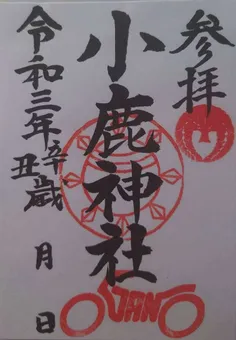 参拝
小鹿神社
令和三年辛丑歳
月 日